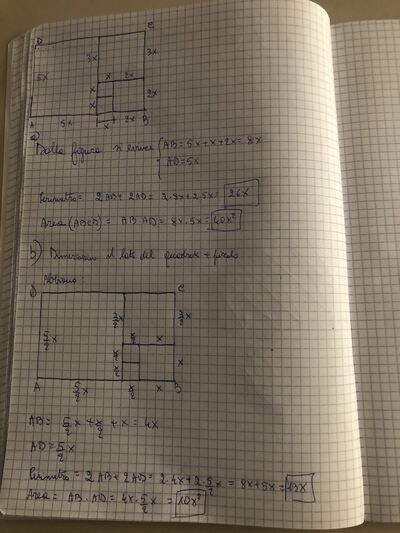 D C
3x 3x
5x x 2x
x 2x
x
A 5x x 2x B
a)
Dalla figura si evince { AB = 5x + x + 2x = 8x
AD = 5x
Perimetro = 2AB + 2AD = 2.8x + 2.5x = 26x
Area (ABCD) = AB AD = 8x . 5x = 40x²
b) il lato del quadrato + piccolo
Abbiamo
D C
3/2 x 3/2 x
5/2 x x/2 x
x/2 x
x/2
A 5/2 x x/2 x B
AB = 5/2 x + x/2 + x = 4x
AD = 5/2 x
Perimetro = 2AB + 2AD = 2.4x + 2.5/2 x = 8x + 5x = 13x
Area = AB . AD = 4x . 5/2 x = 10x²